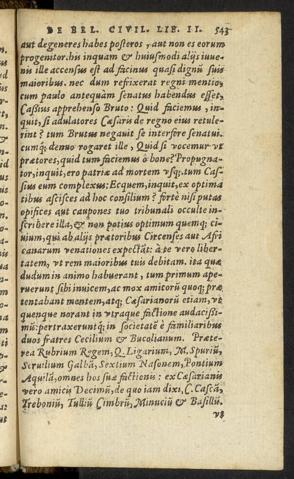 DE BEL. CIVIL. LIB. II. 543
aut degeneres habes posteros, aut non es eorum
progenitor. his inquam & huiusmodi alijs iuue-
nis ille accensus est ad facinus quasi dignũ suis
maioribus. nec dum refixerat regni mentio,
cum paulo antequàm senatus habendus esset,
Caßius apprehenso Bruto: Quid faciemus, in-
quit, si adulatores Cæsaris de regno eius retule-
rint? tum Brutus negauit se interfore senatui.
cumq; denuo rogaret ille, Quid si vocemur vt
prætores, quid tum faciemus ò bone? Propugna-
tor, inquit, ero patriæ ad mortem vsq;. tum Caf-
sius eum complexus; Ecquem, inquit, ex optima
tibus ascisces ad hoc consilium? fortè nisi putas
opifices aut caupones tuo tribunali occulte in-
scribere illa, & non potius optimum quemq; ci-
uium, qui ab alijs prætoribus Circenses aut Afri
canarum venationes expectãt: à te vero liber-
tatem, vt rem maioribus tuis debitam. ita quæ
dudum in animo habuerant, tum primum ape-
ruerunt sibi inuicem, ac mox amicorũ quoq; præ
tentabant mentem, atq; Cæsarianorũ etiam, vt
quenque norant in vtraque factione audacissi-
mũ: pertraxeruntq; in societatẽ è familiaribus
duos fratres Cecilium & Bucolianum. Præte-
rea Rubrium Regem, Q. Ligarium, M. Spuriũ,
Seruilium Galbã, Sextium Nasonem, Pontium
Aquilã, omnes hos suæ factionis: ex Cæsarianis
vero amicis Decimũ, de quo iam dixi, C. Cascã,
Treboniũ, Tulliũ Cimbrũ, Minuciũ & Basillũ.